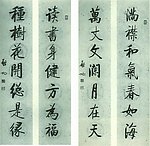 滿襟和氣春如海
萬丈文瀾月在天
讀書身健方為福
種樹花開總是緣